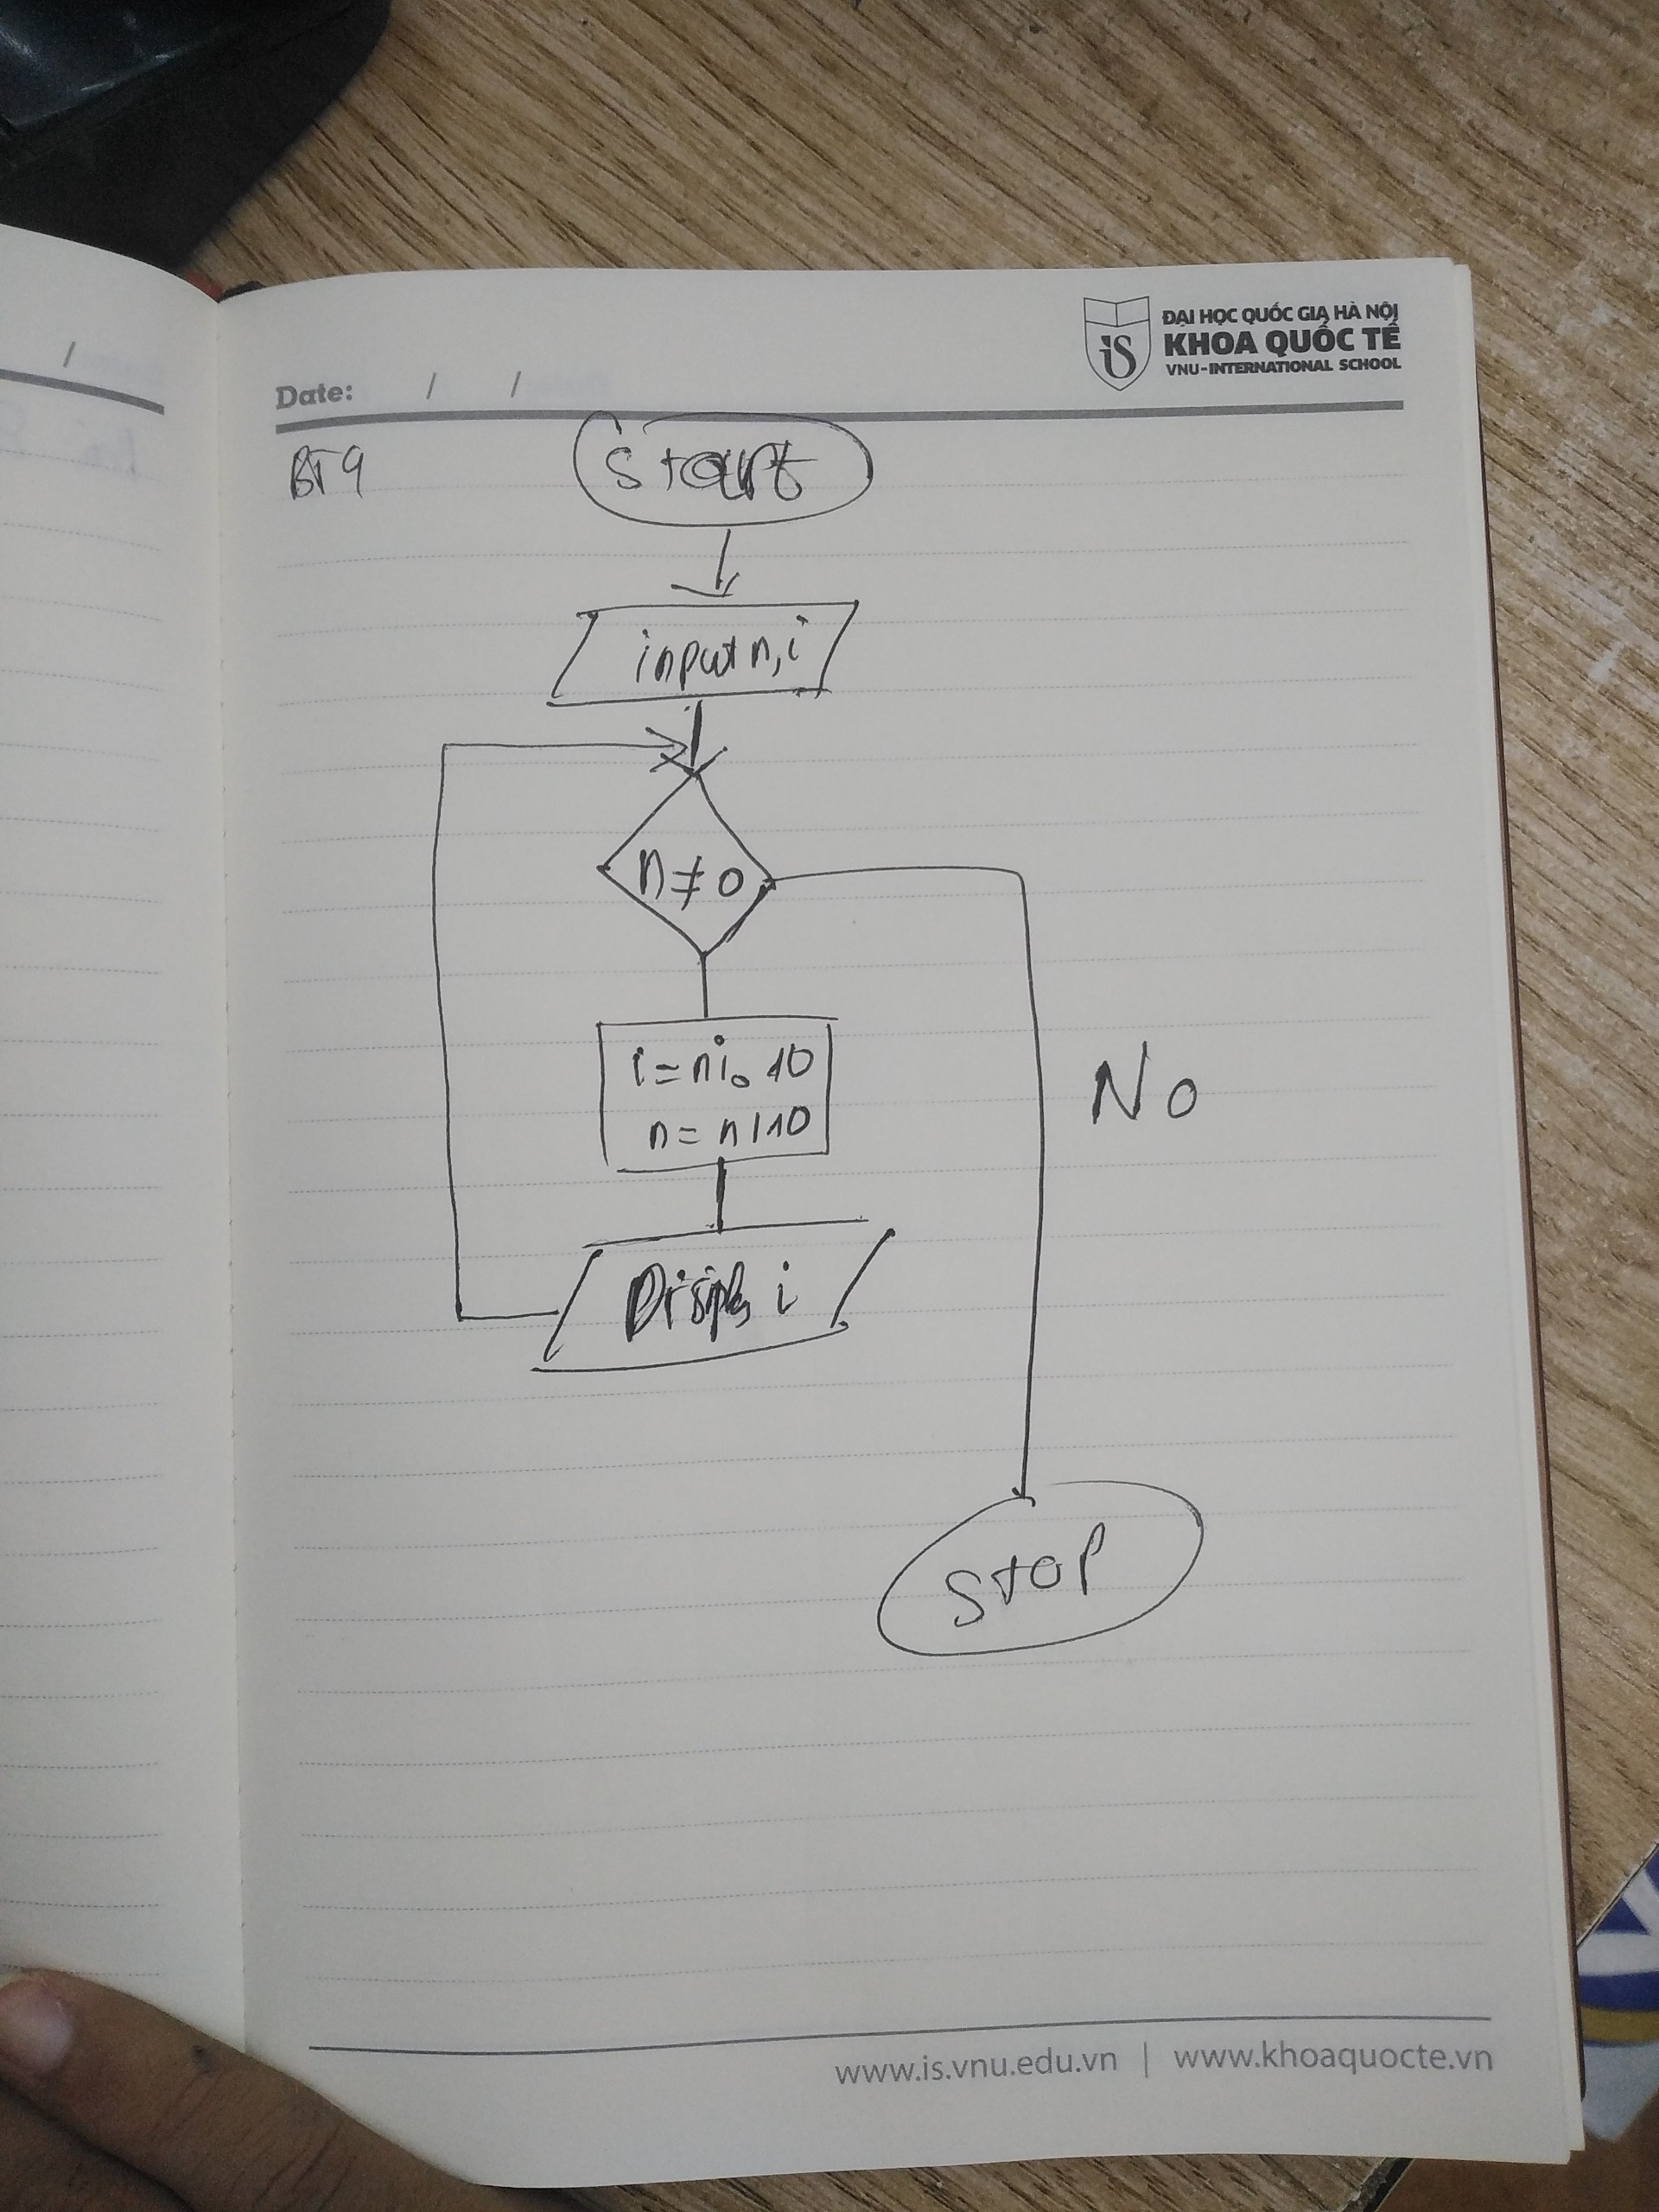 ĐẠI HỌC QUỐC GIA HÀ NỘI
KHOA QUỐC TẾ
VNU-INTERNATIONAL SCHOOL
iS
Date: / /
BT9
Start
input n, i
n ≠ 0
i = n % 10
n = n / 10
No
i
STOP
www.is.vnu.edu.vn | www.khoaquocte.vn